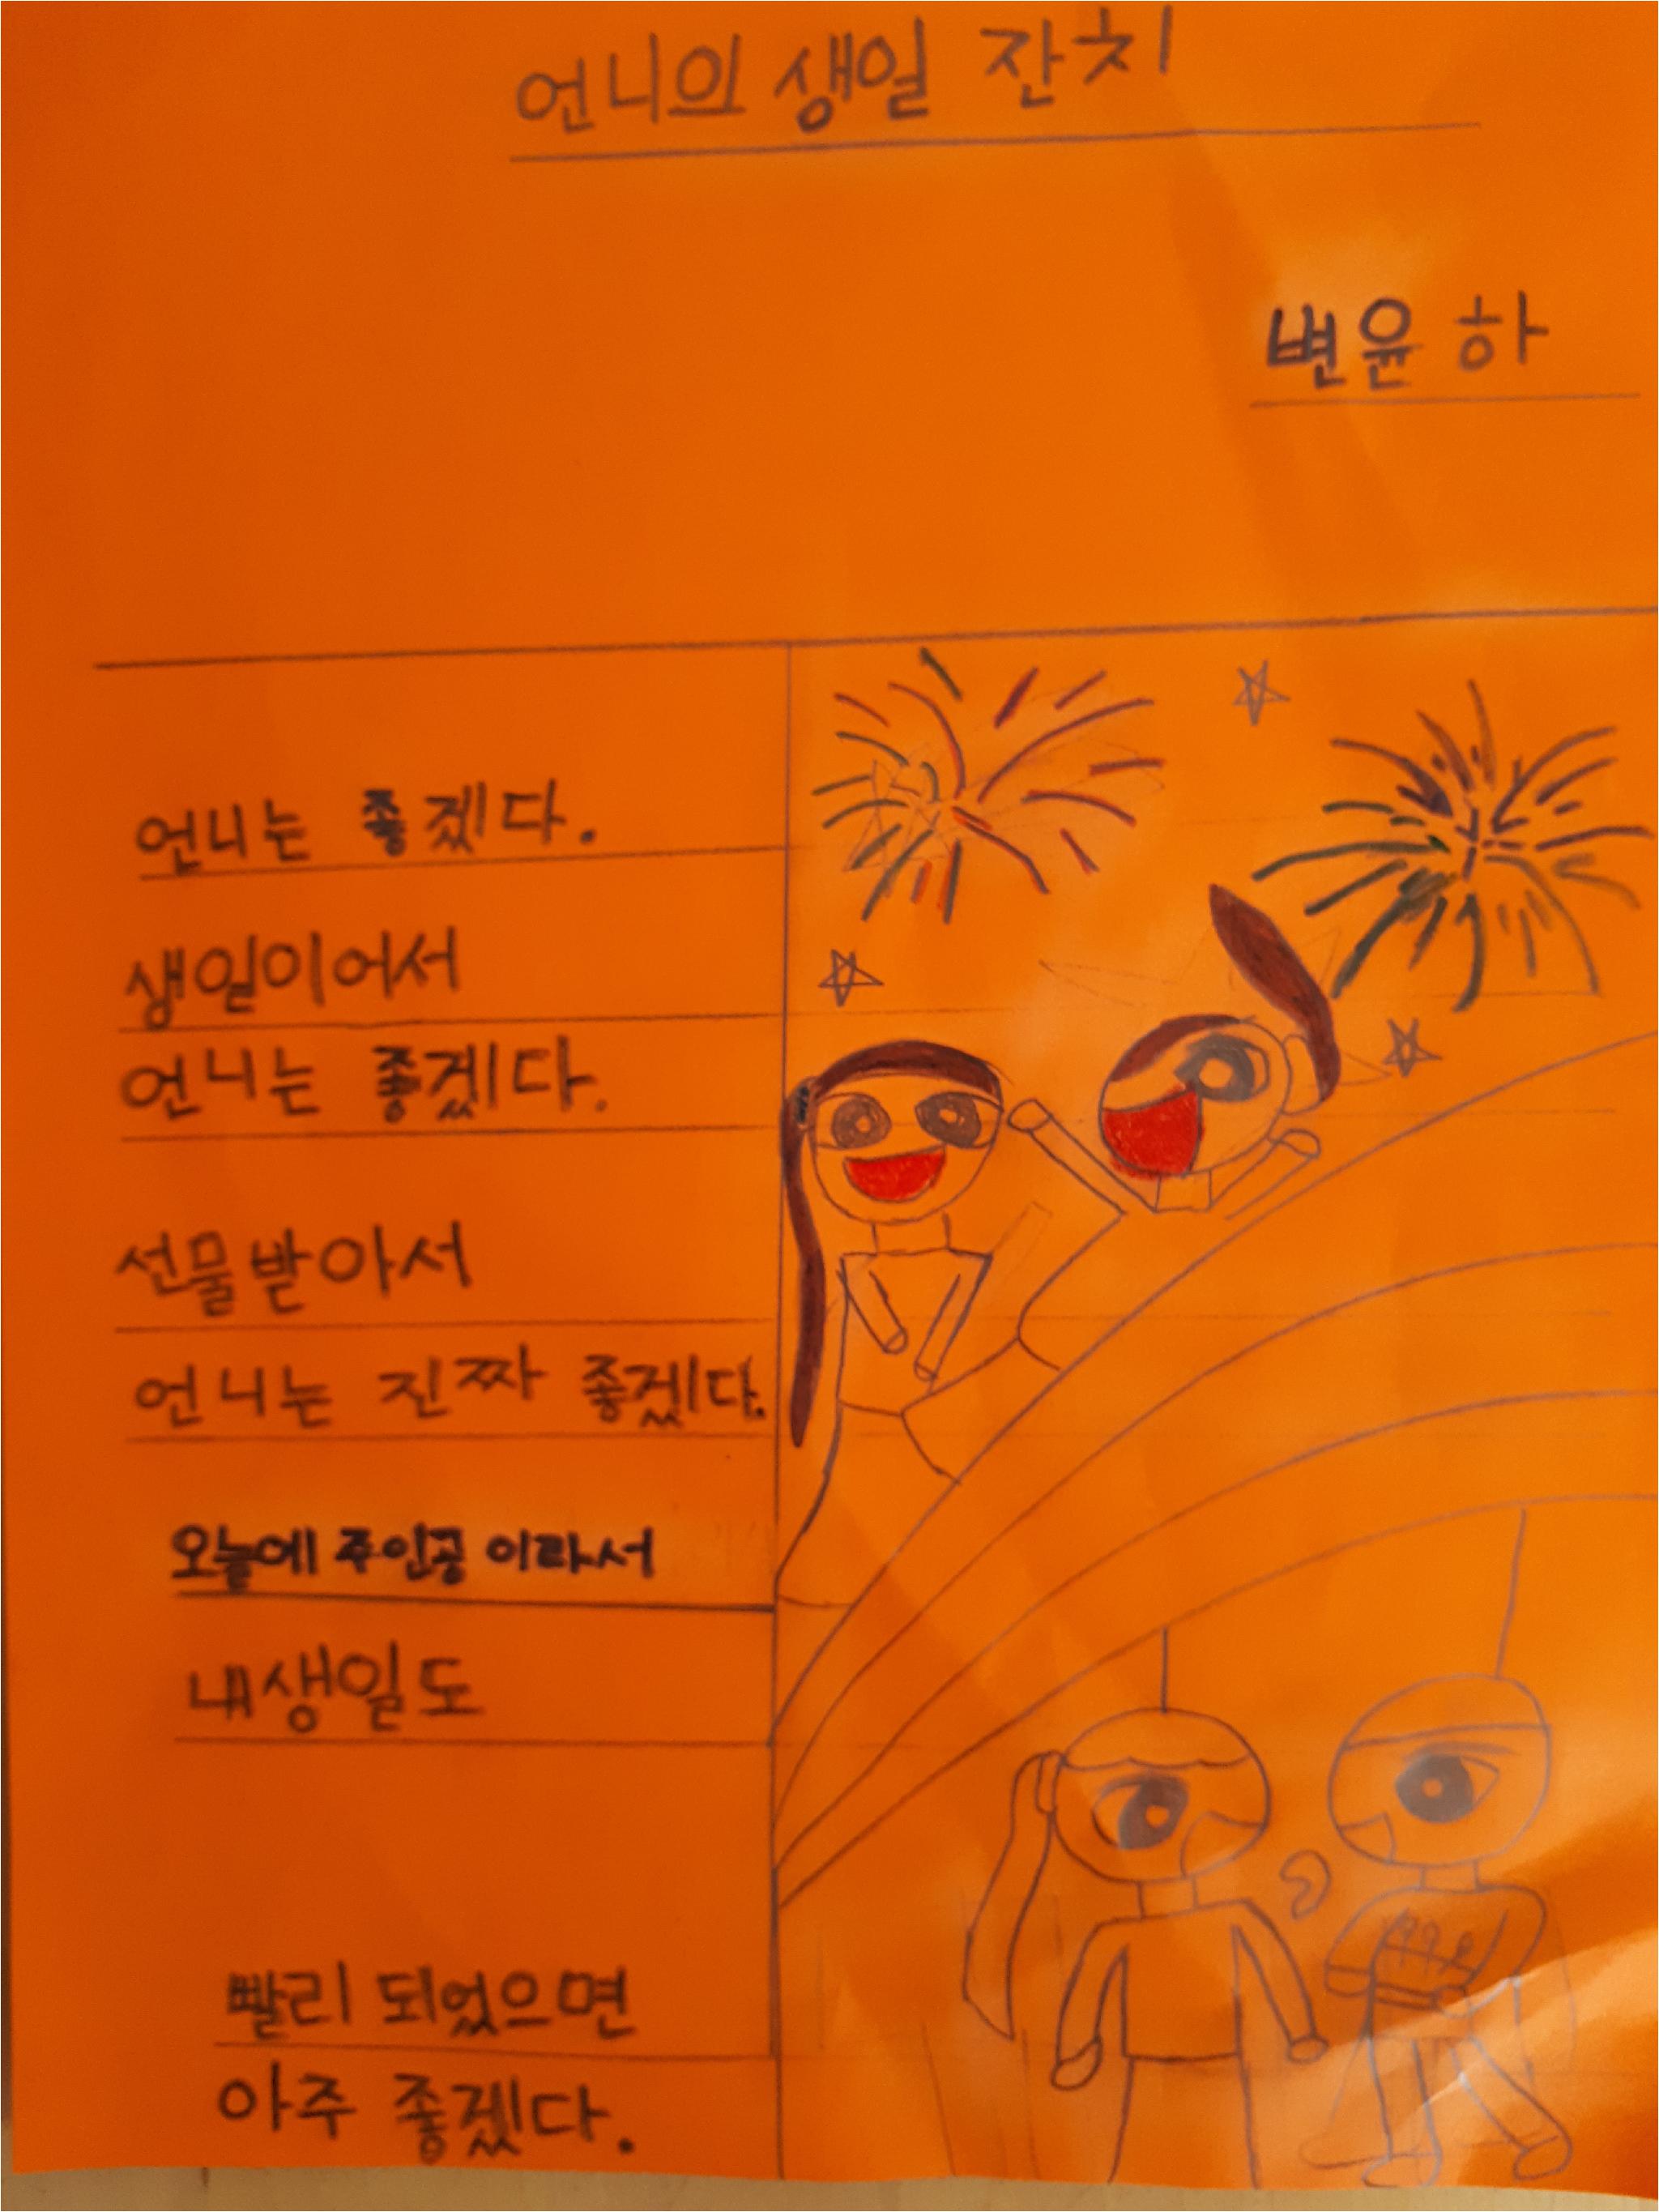 언니의 생일 잔치
변윤하
언니는 좋겠다.
생일이어서
언니는 좋겠다.
선물받아서
언니는 진짜 좋겠다.
오늘에 주인공 이라서
내생일도
빨리 되었으면
아주 좋겠다.